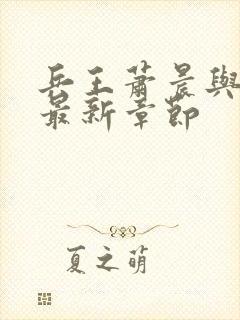 兵王蕭晨與
最新章節
夏之萌